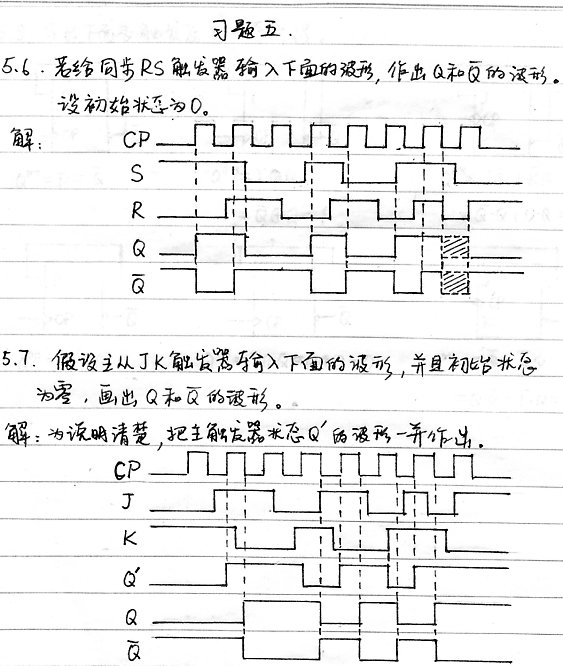 习题五.
5.6. 若给同步RS触发器输入下面的波形, 作出Q和Q̅的波形。
设初始状态为0。
解:
CP
S
R
Q
Q̅
5.7. 假设主从JK触发器输入下面的波形, 并且初始状态
为零, 画出Q和Q̅的波形。
解: 为说明清楚, 把主触发器状态Q'的波形一并作出。
CP
J
K
Q'
Q
Q̅